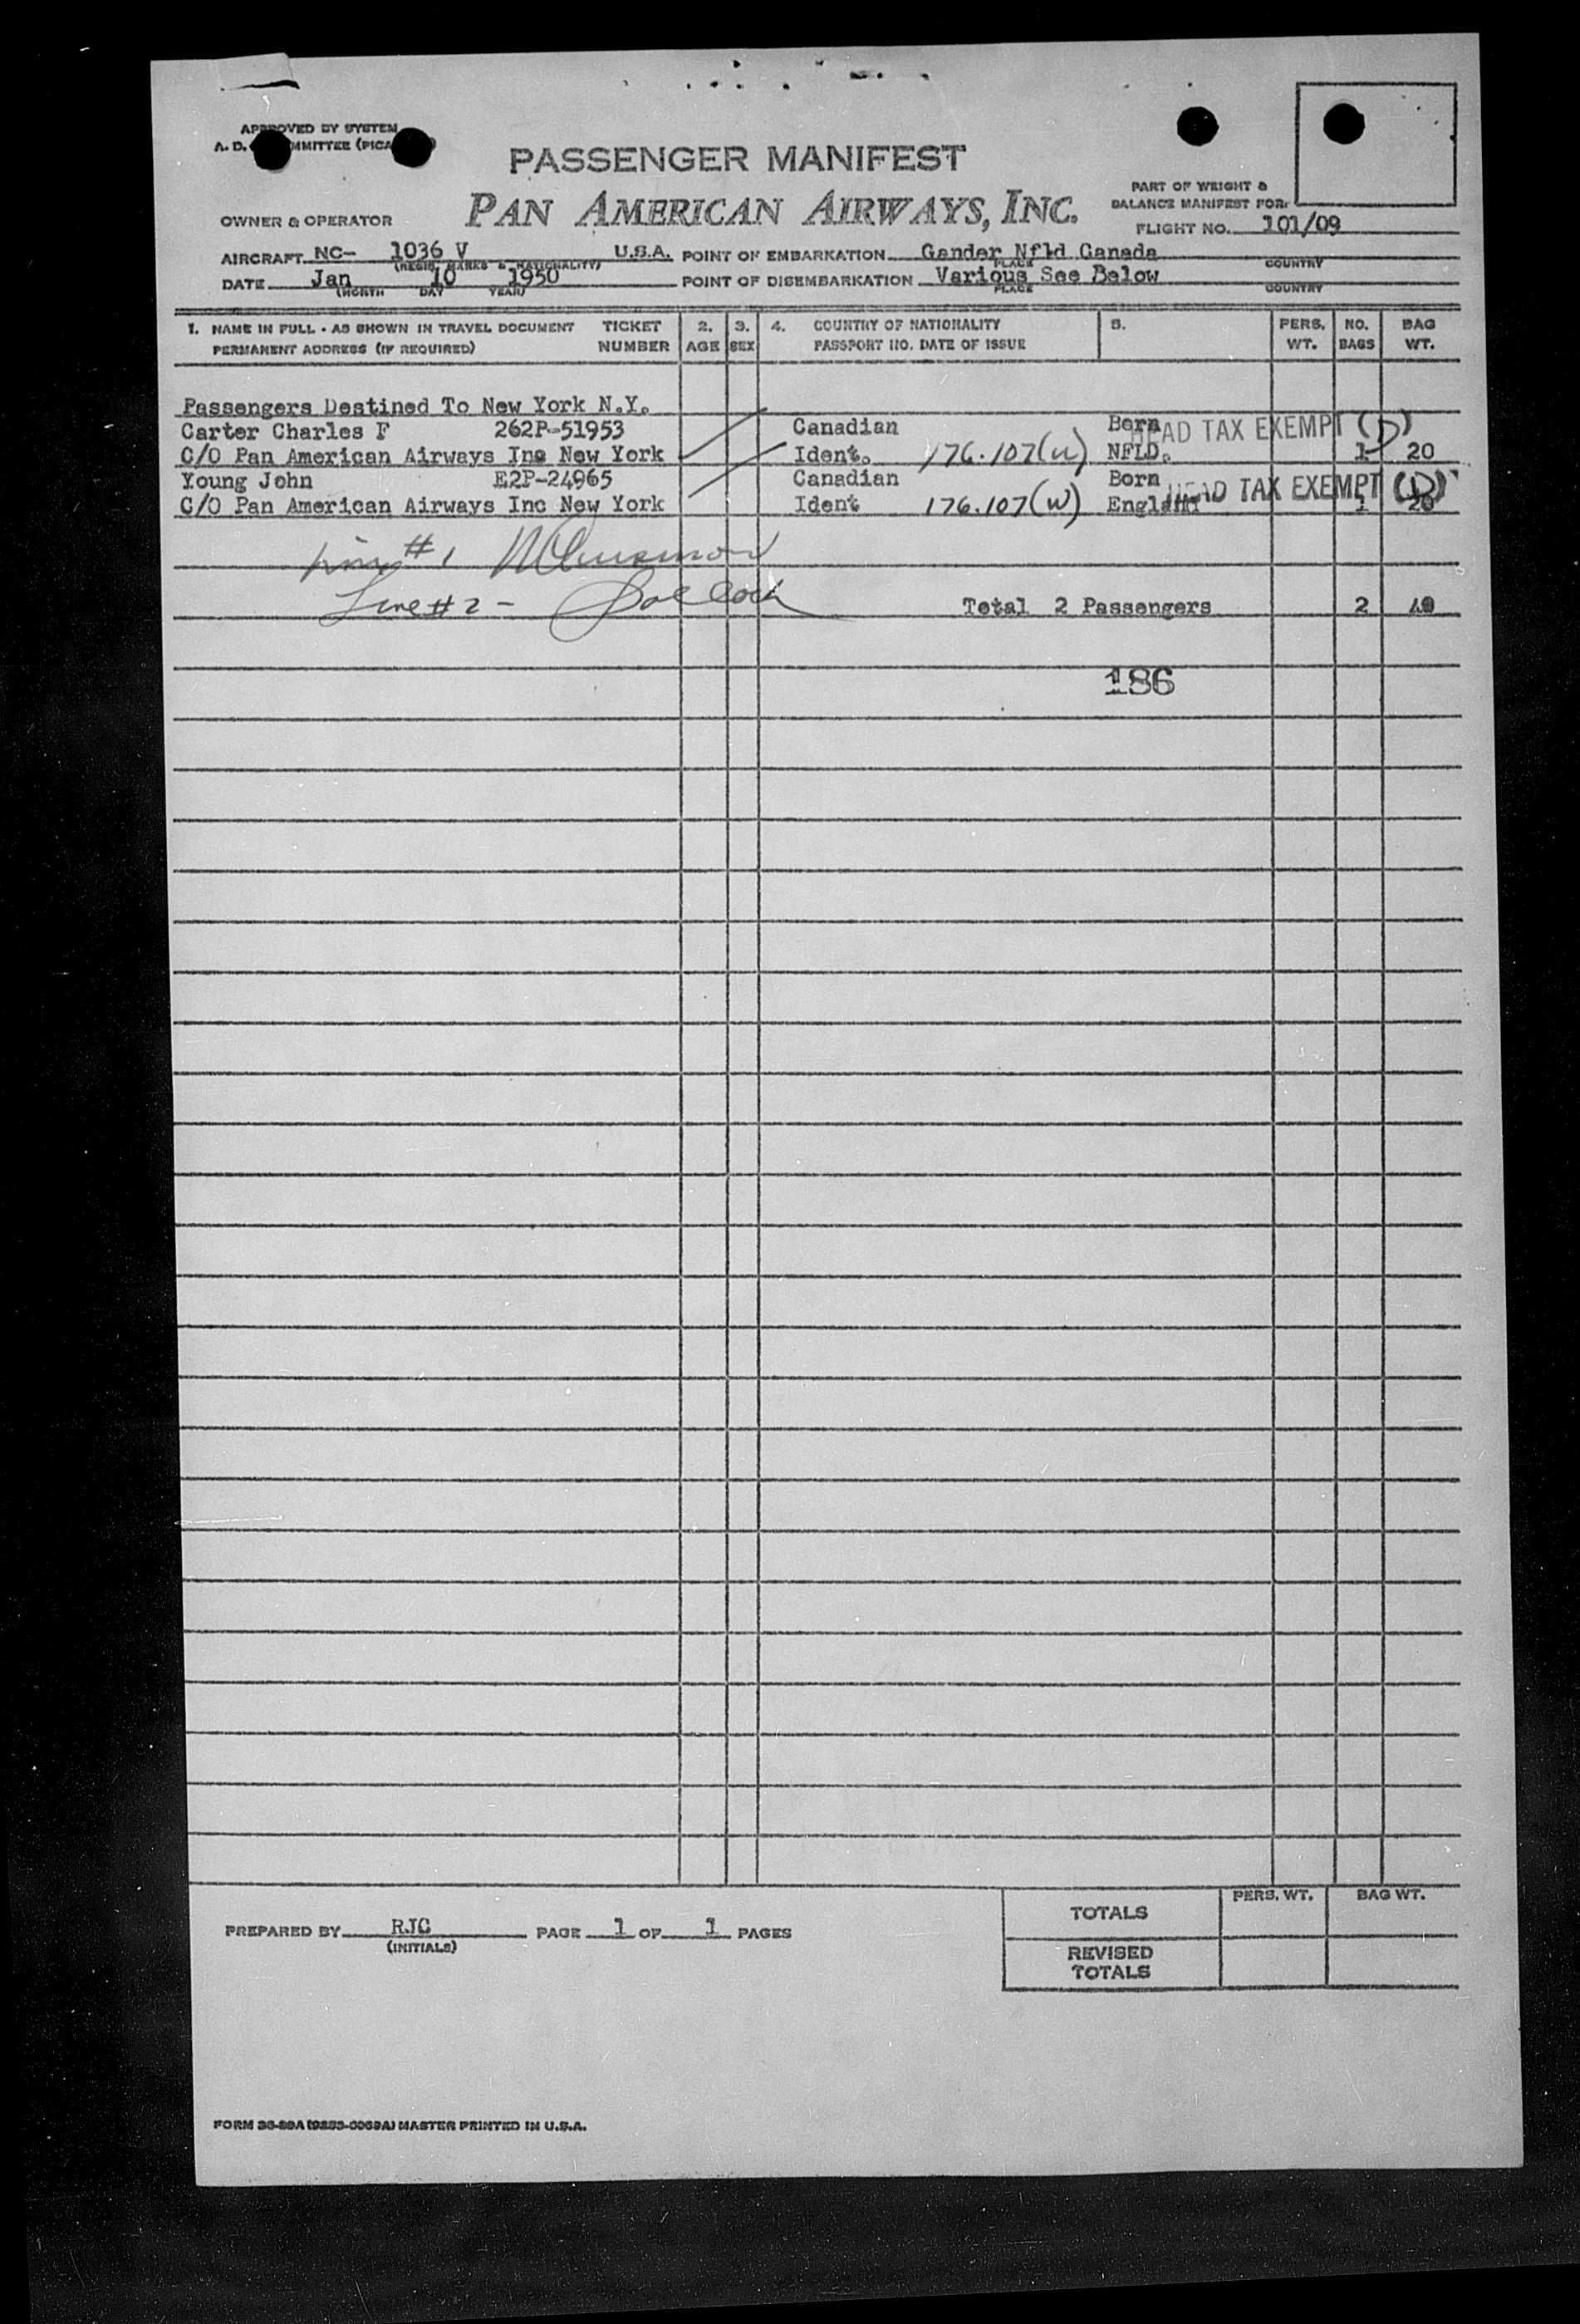 APPROVED BY SYSTEM
A. D. COMMITTEE (PICA
PASSENGER MANIFEST
PAN AMERICAN AIRWAYS, INC.
PART OF WEIGHT &
BALANCE MANIFEST FOR:
OWNER & OPERATOR
FLIGHT NO. 101/09
AIRCRAFT NC- 1036 V U.S.A. POINT OF EMBARKATION Gander Nfld Canada
(REGIS. MARKS & NATIONALITY) PLACE COUNTRY
DATE Jan 10 1950 POINT OF DISEMBARKATION Various See Below
(MONTH DAY YEAR) PLACE COUNTRY
1. NAME IN FULL - AS SHOWN IN TRAVEL DOCUMENT TICKET 2. 3. 4. COUNTRY OF NATIONALITY 5. PERS. NO. BAG
PERMANENT ADDRESS (IF REQUIRED) NUMBER AGE SEX PASSPORT NO. DATE OF ISSUE WT. BAGS WT.
Passengers Destined To New York N.Y.
Carter Charles F 262P-51953 Canadian Born HEAD TAX EXEMPT (D)
C/O Pan American Airways Inc New York Ident. 176.107(W) NFLD. 1 20
Young John E2P-24965 Canadian Born HEAD TAX EXEMPT (D)
C/O Pan American Airways Inc New York Ident 176.107(W) England 1 20
Line #1
Line #2 -
Total 2 Passengers 2 40
186
TOTALS PERS. WT. BAG WT.
PREPARED BY RJC PAGE 1 OF 1 PAGES
(INITIALS)
REVISED
TOTALS
MASTER PRINTED IN U.S.A.